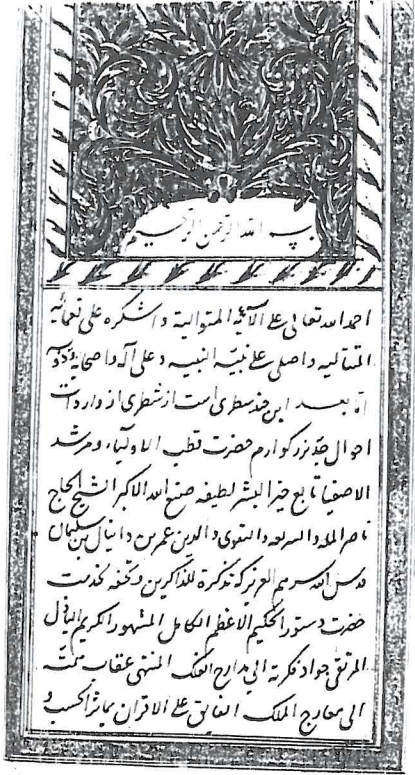 بسم الله الرحمن الرحيم
احمد الله تعالى على آلائه المتوالية و اشكره على نعمائه
المتتاليه و اصلى على نبيّه النبيه و على آله و اصحابه و ذويه
امّا بعد اين چند سطرى است از شطرى از واردات
احوال جدّ بزرگوارم حضرت قطب الاولياء و مرشد
الاصفيا تابع خير البشر لطيفه صنع الله الاكبر الشيخ الحاج
ناصر المله و الشريعه و التقوى و الدين عمر بن دانيال بن سليمان
قدس الله سرهم العزيز كه تذكرة للذاكرين و تحفه بخدمت
حضرت دستور الحكيم الاعظم الكامل المشهور الكريم الباذل
المرتقى جواد فكرته الى مدارج الفلك المنتهى عقاب همّته
الى معارج الملك الفايق على الاقران بمآثر الحسب و